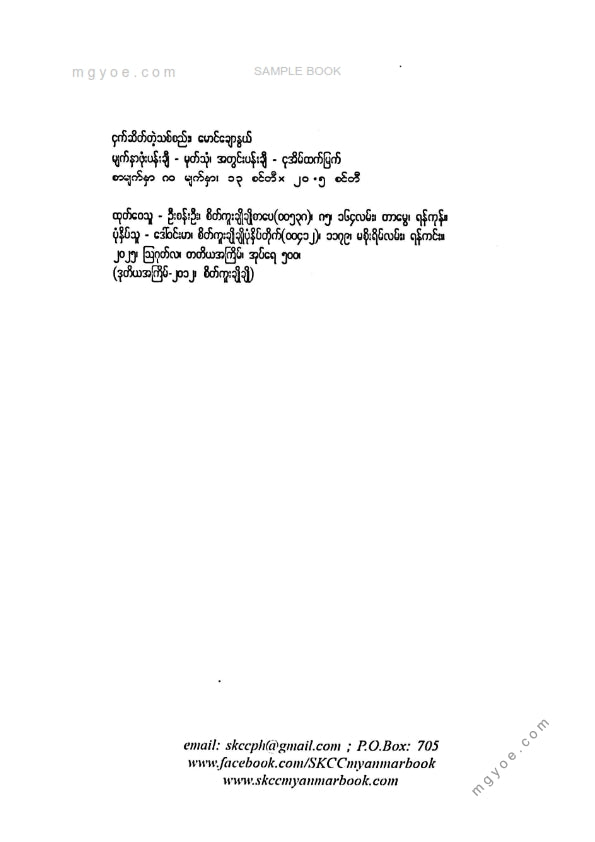 mgyoe.com
SAMPLE BOOK
ငှက်ဆိတ်တဲ့သစ်စည်း၊ မောင်ချောနွယ်
မျက်နှာဖုံးပန်းချီ - မှတ်သုံ၊ အတွင်းပန်းချီ - ငုအိမ်ထက်မြက်
စာမျက်နှာ ၈၀ မျက်နှာ၊ ၁၃ စင်တီ × ၂၀.၅ စင်တီ
ထုတ်ဝေသူ - ဦးစန်းဦး၊ စိတ်ကူးချိုချိုစာပေ(၀၀၅၃၈)၊ ၈၅၊ ၁၆၄လမ်း၊ တာမွေ၊ ရန်ကုန်။
ပုံနှိပ်သူ - ဒေါ်ဝင်းမာ၊ စိတ်ကူးချိုချိုပုံနှိပ်တိုက်(၀၀၄၁၂)၊ ၁၁၇၉၊ မစိုးရိမ်လမ်း၊ ရန်ကင်း။
၂၀၂၅၊ ဩဂုတ်လ၊ တတိယအကြိမ်၊ အုပ်ရေ ၅၀၀၊
(ဒုတိယအကြိမ်-၂၀၁၂၊ စိတ်ကူးချိုချို)
email: skccph@gmail.com ; P.O.Box: 705
www.facebook.com/SKCCmyanmarbook
www.skccmyanmarbook.com
mgyoe.com